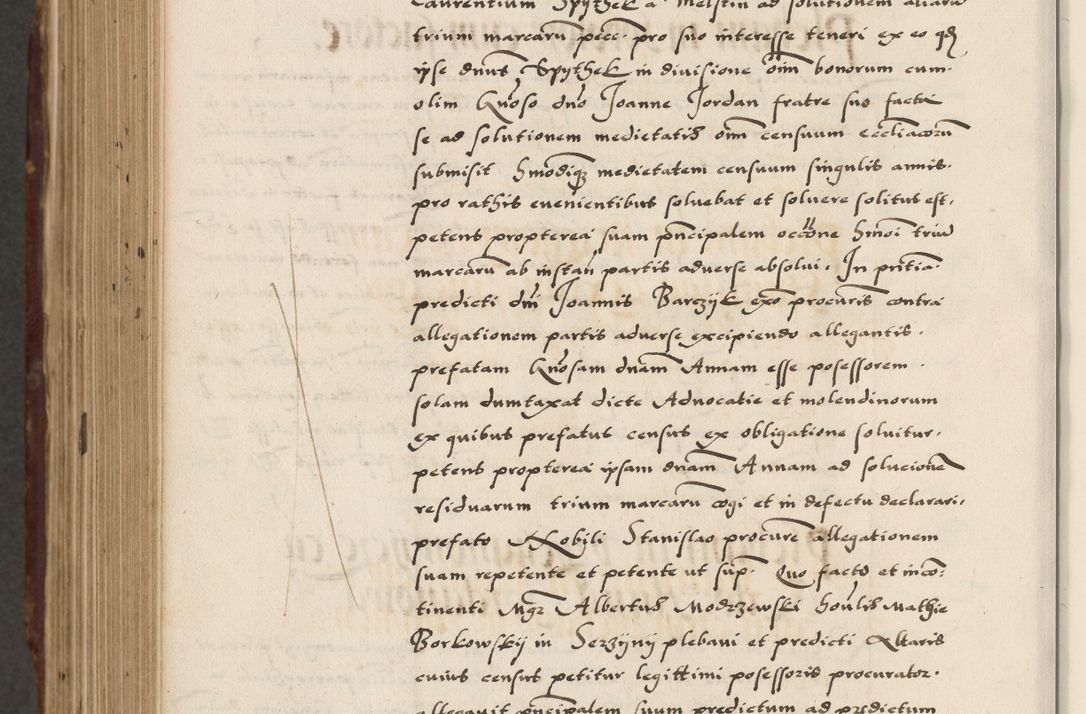 Laurentium Spythek a Melstin ad solutionem aliarū
trium marcarū pecc. pro suo interesse teneri ex eo qđ
ipse dnus Spythek in divisione oīm bonorum cum
olim Gnoso dno Joanne Jordan fratre suo facta
se ad solutionem medietatis oīm censuum eccliacorū
submisit hmodique medietatem censuum singulis annis
pro rathis evenientibus solvebat et solvere solitus est,
petens propterea suam pncipalem occōne hmoi triū
marcarū ab instan partis adverse absolvi. In pntia
predicti dni Joannis Barczyk exō procuris contra
allegationem partis adverse excipiendo allegantis
prefatam Gnosam dnam Annam esse posessorem
solam dumtaxat dicte Advocatie et molendinorum
ex quibus prefatus census ex obligatione solvitur,
petens propterea ipsam dnam Annam ad solucionē
residuarum trium marcarū cogi et in defectu declarari,
prefato Nobili Stanislao procure allegationem
suam repetente et petente ut sup. Quo facto et incō-
tinenti Mgr Albertus Modrzewski honlis Mathie
Borkowskij in Serzijnij plebani et predicti Altaris
cuius census petitur legittimi posessoris procurator
allegavit pncipalem suum predictum ad predictum